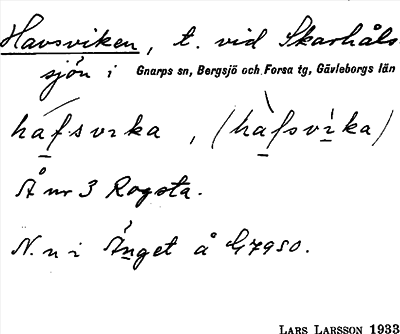 Havsviken, t. vid Skarhåls-
sjön i Gnarps sn, Bergsjö och Forsa tg, Gävleborgs län
háfsvıka, (hàfsvìka)
Å nr 3 Rogsta.
N. n i Änget å G7950.
LARS LARSSON 1933